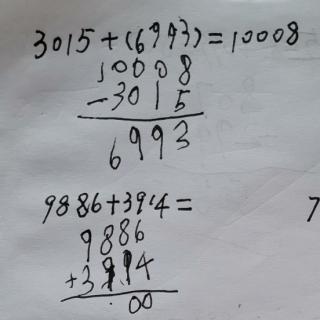 3015+(6993)=10008
10008
-3015
6993
9886+3914=
7
9886
+3914
.00